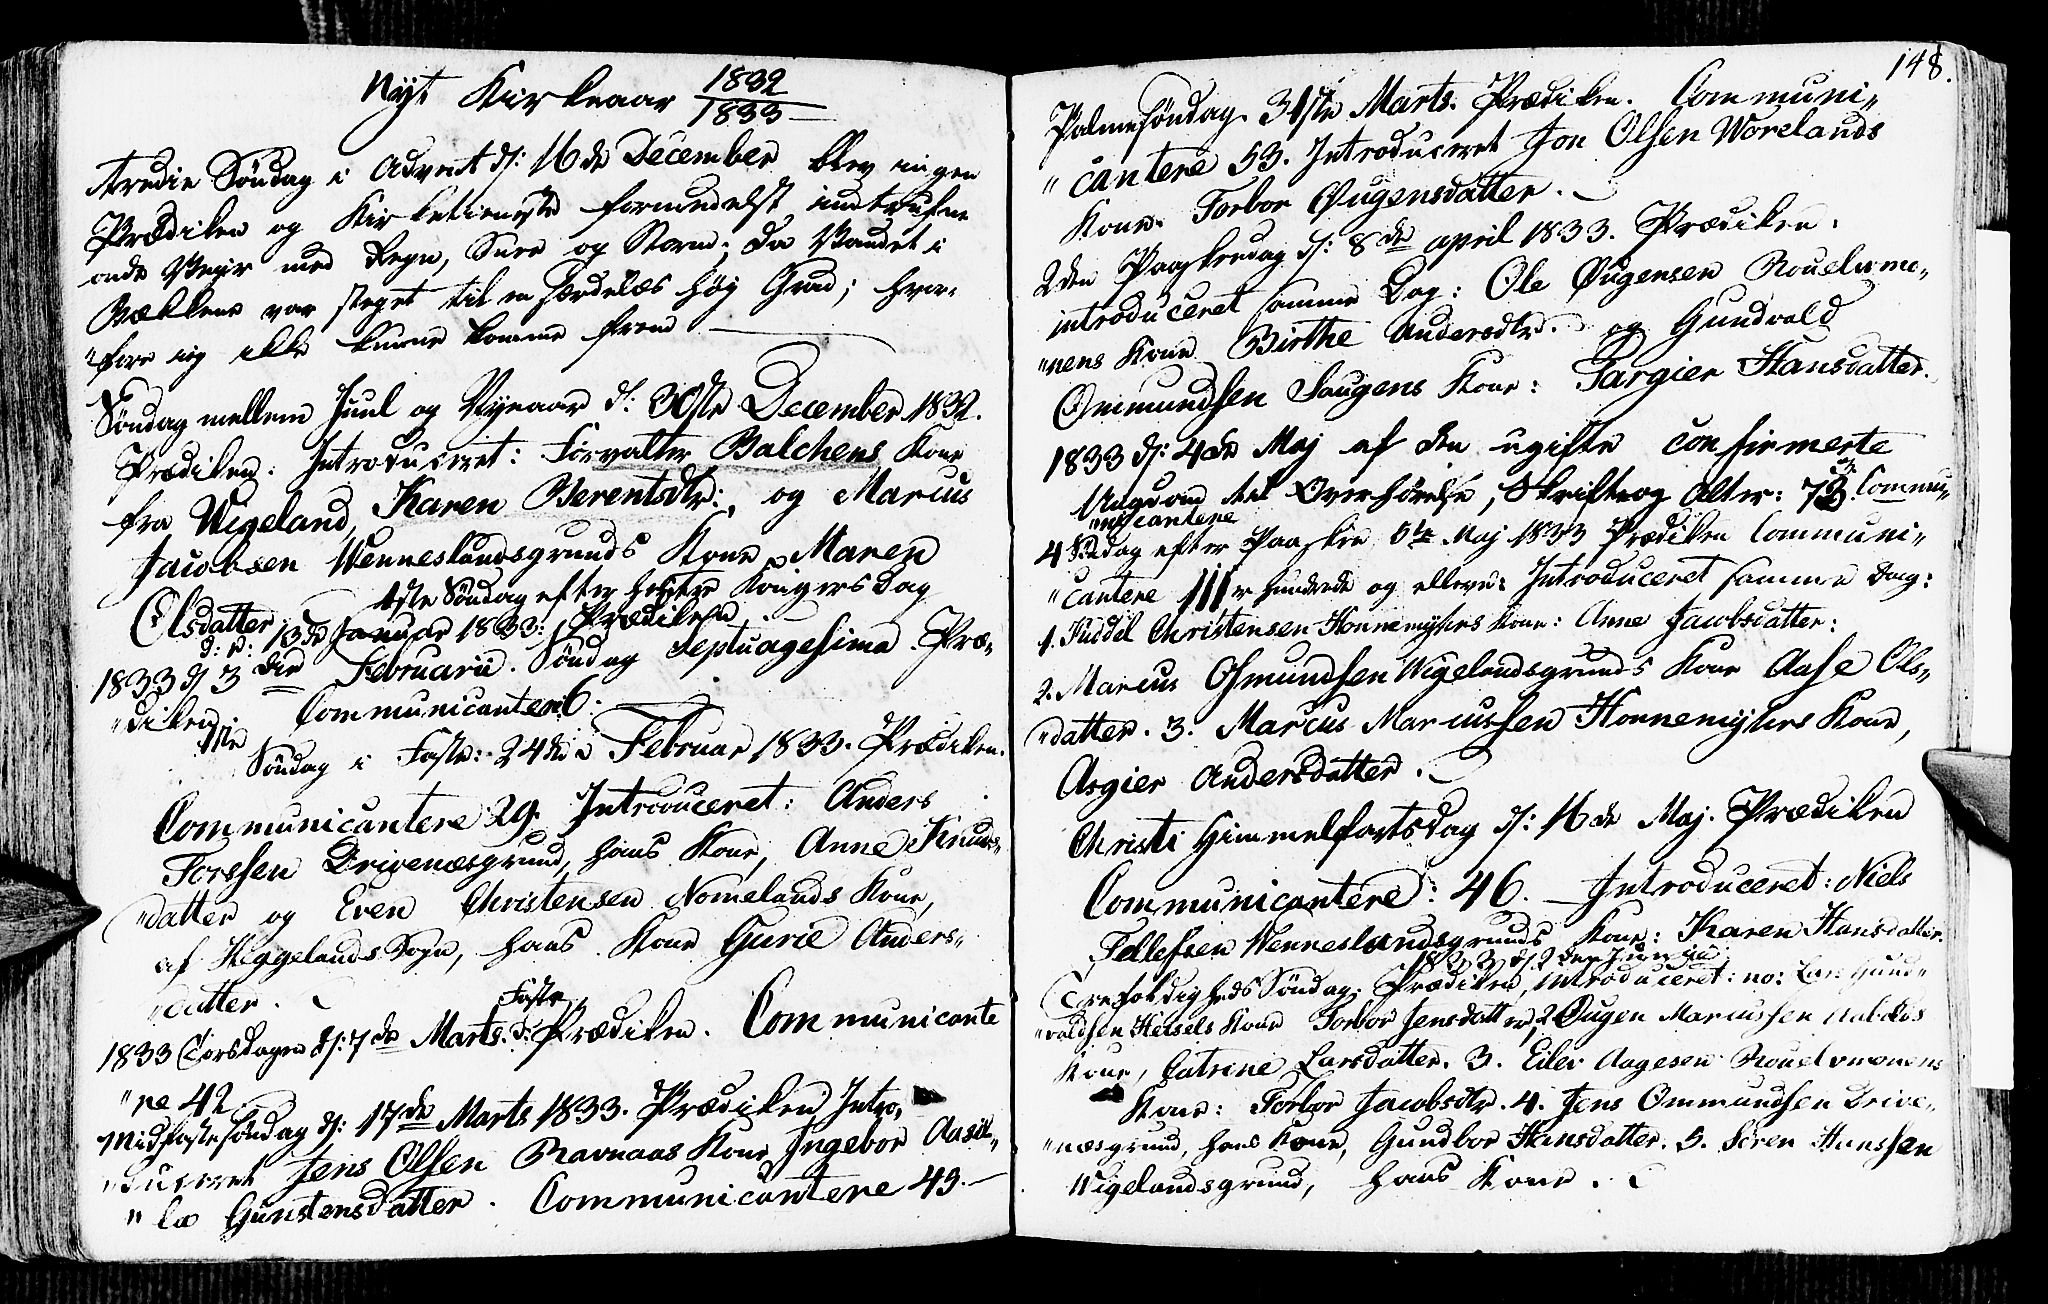 Nyt Kirkeaar 1832/1833
tredie Søndag i Advent d: 16de December blev ingen
Prædiken og Kirketieneste formedelst indtrufne
onde Vejr med Regn, Snee og Storm; da Vandet i
Bækkene var steget til en særdeles høy Grad; hvor-
"fore jeg ikke kunne komme frem
Søndag mellem Juul og Nyeaar d: 30ste December 1832.
Prædiken. Introduceret: Forvalter Balchens Kone
fra Wigeland, Karen Berentsdtr:, og Marcus
Jacobsen Wenneslandsgrunds Kone Maren
Olsdatter. 1ste Søndag efter hellige Kongersdag
d: e: 13de Januar 1833: Prædiken
1833 d 3die Februarii. Søndag Septuagesima. Præ-
"diken. Communicantere 6.
1ste Søndag i Faste: 24de Februar 1833. Prædiken.
Communicantere 29. Introduceret: Anders
Torssen Drivenæsgrund, hans Kone, Anne Knuds-
"datter og Even Christensen Nomelands Kone,
af Heggelands Sogn, hans Kone Gurie Anders-
"datter.
1833 Torsdagen d: 7de Marts. Faste Prædiken. Communicante
"re 42.
Midfastesøndag d: 17de Marts 1833. Prædiken, Intro-
"duceret Jens Olsen Ravnaas Kone Ingebor Aasil-
"la Gunstensdatter. Communicantere 49.
148.
Palmesøndag. 31ste Marts. Prædiken. Communi-
"cantere 53. Introduceret Jon Olsen Worelands
Kone. Torbor Øugensdatter.
2den Paaskedag d: 8de april 1833. Prædiken.
introduceret samme Dag: Ole Øugensen Rouelvmo-
"nens Kone Birthe Andersdtr. og Gundvald
Ommundsen Haugens Kone: Targier Hansdatter.
1833 d: 4de Maj af den ugifte confirmerte
Ungdom til Overhørelse, Skrift og Alter: 73 Commu-
"nicantere
4 Søndag efter Paaske 5te Maj 1833 Prædiken Communi-
"cantere 111 er hundrede og elleve: Introduceret samme Dag:
1. Fuddel Christensen Honnemyhrs Kone: Anne Jacobsdatter:
2. Marcus Osmundsen Wigelandsgrunds Kone Aase Ols-
"datter. 3. Marcus Marcussen Honnemyhrs Kone,
Asgier Andersdatter.
Christi Himmelfartsdag d: 16de Maj. Prædiken
Communicantere: 46. Introduceret: Niels
Tellefsen Wenneslandsgrunds Kone: Karen Hansdatter.
1833 d: 2den Junii
Trefoldigheds Søndag: Prædiken, introduceret: no: Lars Gund-
"valdsen Heisels Kone Torbor Jensdatter, 2 Øugen Marcussen
Kone, Catrine Larsdatter. 3. Eilev Aagesen Rouelvmonens
Kone: Torbor Jacobsdtr. 4. Jens Ommundsen Drive-
"næsgrund, hans Kone, Gundbor Hansdatter. 5. Søren Hanssen
Wigelandsgrund, hans Kone.